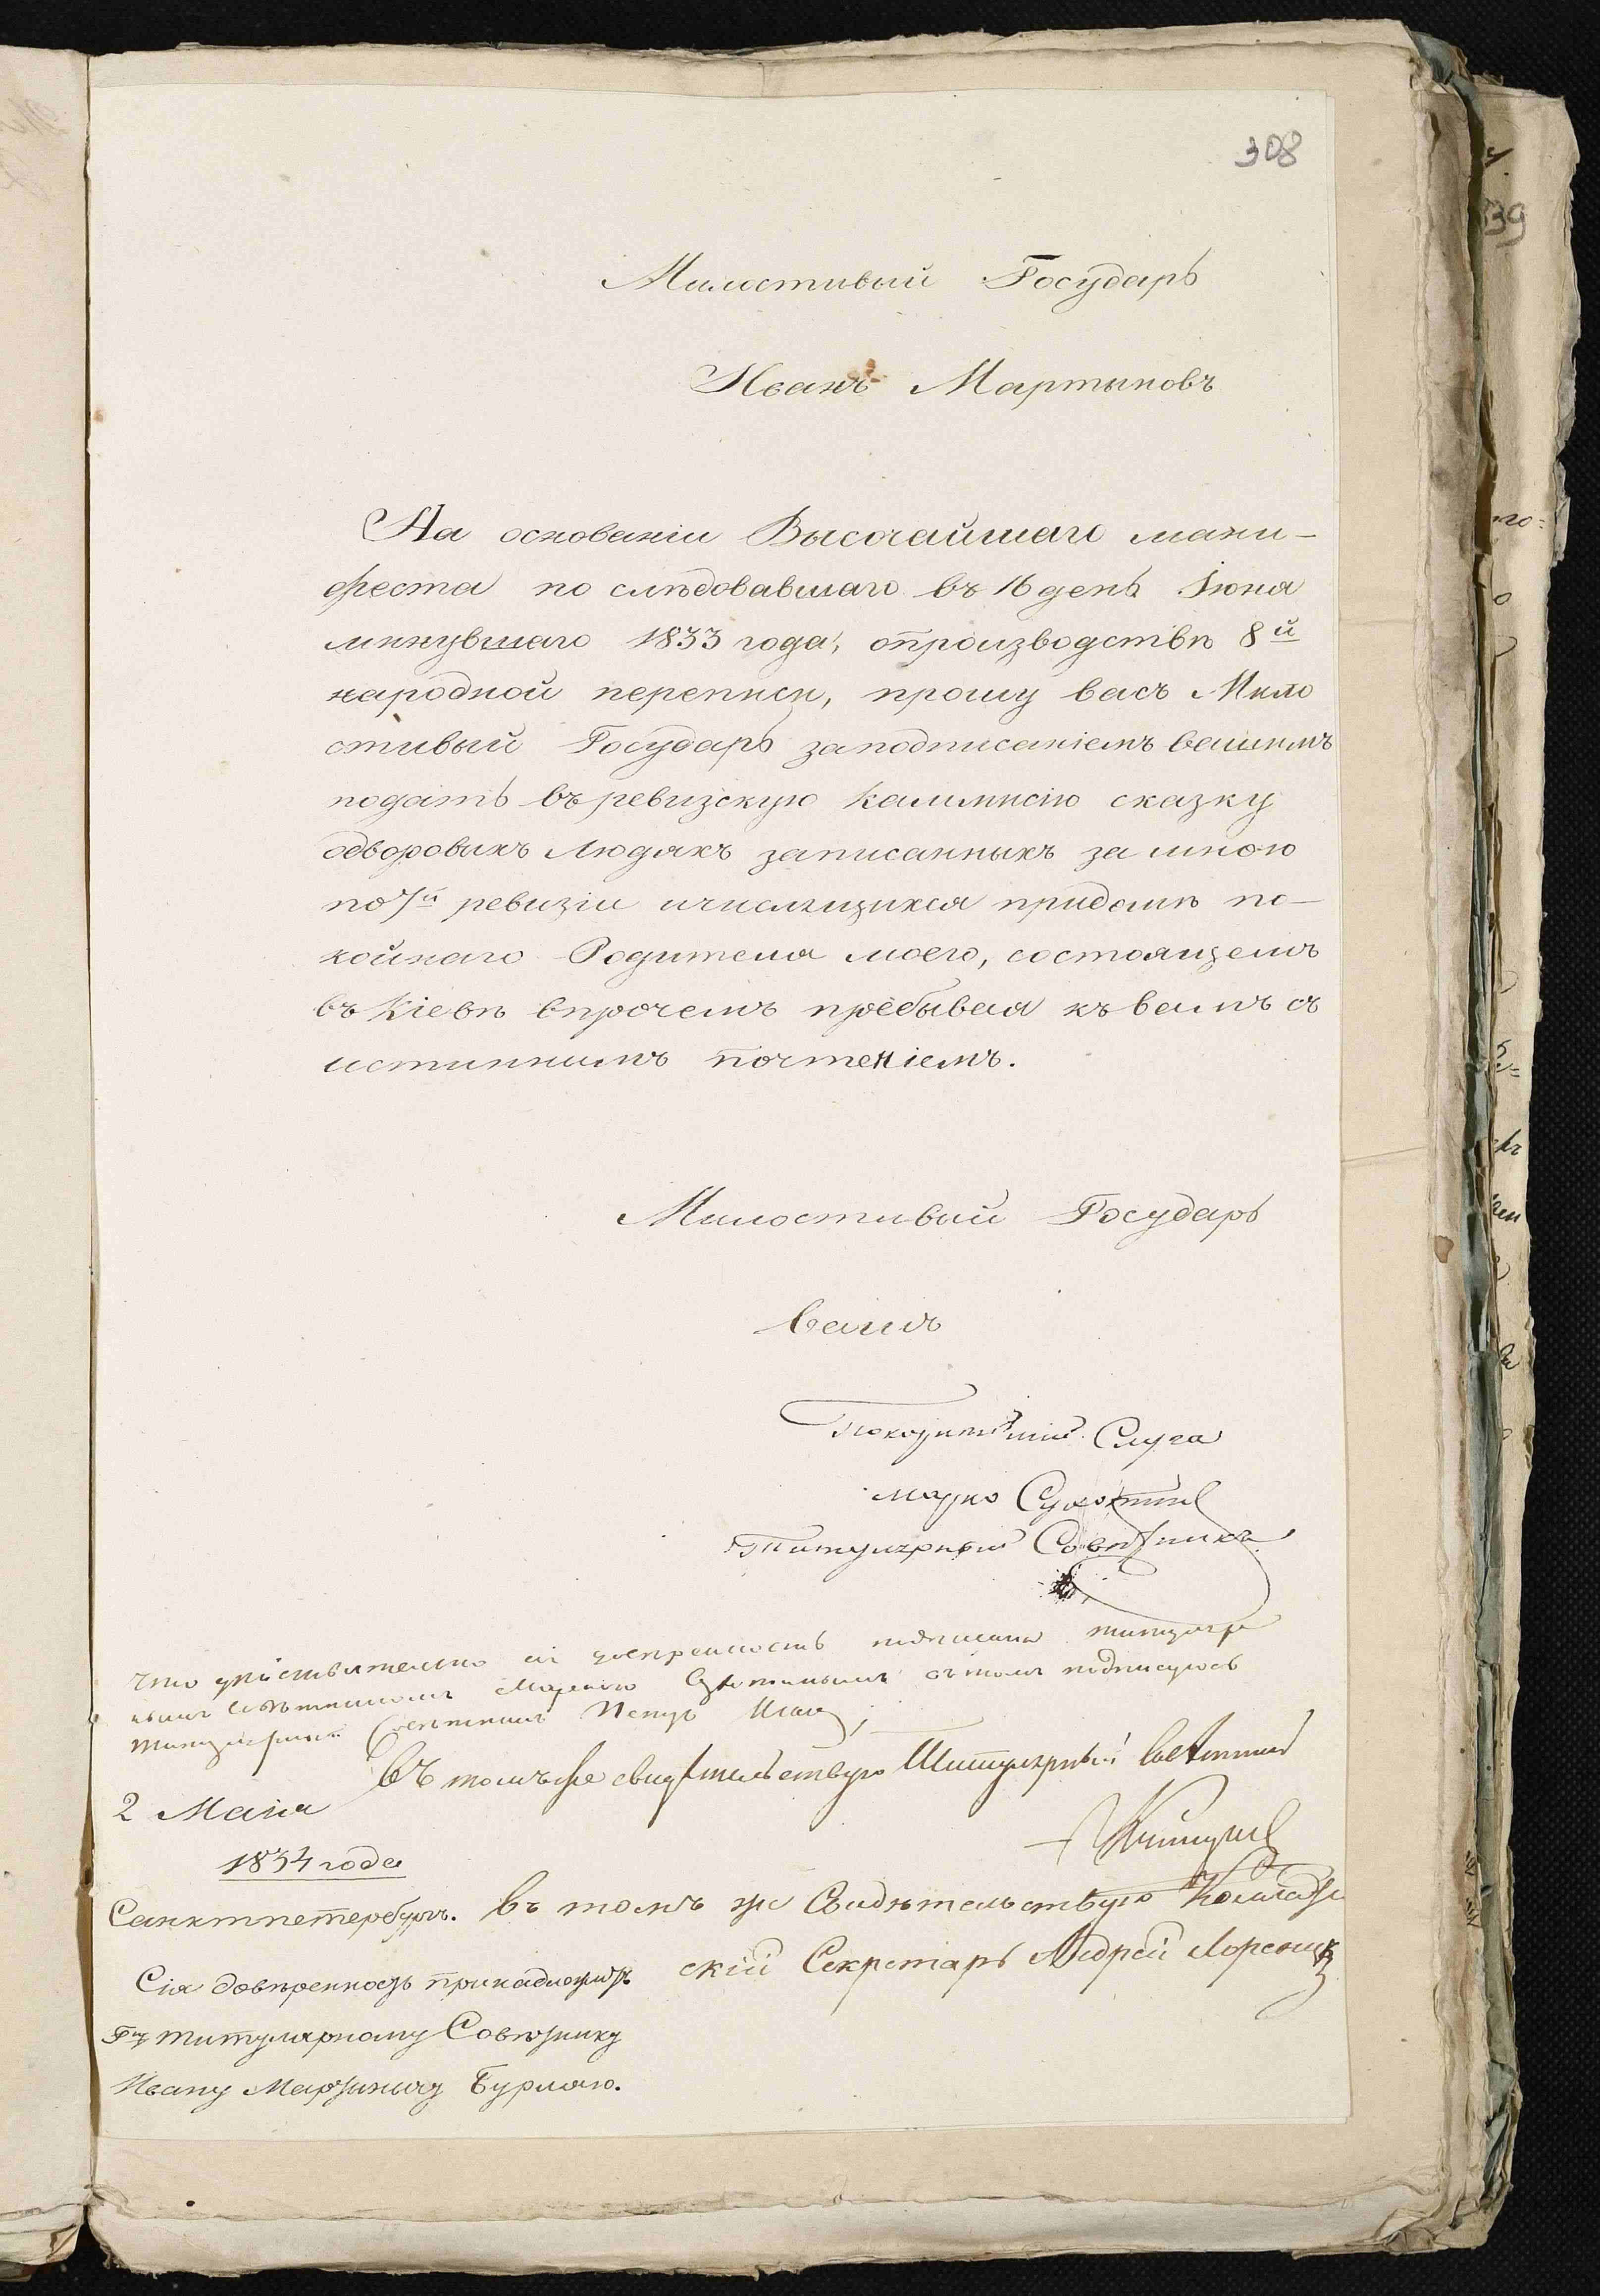 308
Милостивый Государь
Иванъ Мартыновъ
На основаніи Высочайшаго мани-
феста по слѣдовавшаго въ 16 день Іюня
минувшаго 1833 года, опроизводствѣ 8й
народной переписи, прошу васъ Мило
стивый Государь заподписаніемъ вашимъ
подать въ ревизскую каммисію сказку
одворовыхъ людяхъ записанныхъ за мною
по 7й ревизіи ичислящихся придомѣ по-
койнаго Родителя моего, состоящемъ
въ Кіевѣ впрочемъ пребывая къ вамъ съ
истиннымъ почтеніемъ.
Милостивый Государь
вашъ
Покорнѣйшій Слуга
Марко
Титулярный Совѣтникъ
что дѣйствительно сія довѣренность подписана титуляр
нымъ Совѣтникомъ въ томъ подписуюсь
Титулярный Совѣтникъ Петръ
Въ томъ же свидѣтельствую Титулярный Совѣтникъ
2 Маія
1834 года
Санктпетербургъ.
въ томъ же Свидѣтельствую Коллеж
скій Секретарь Андрей
Сія довѣренность принадлежитъ
Гну титулярному Совѣтнику
Ивану Мартыновичу